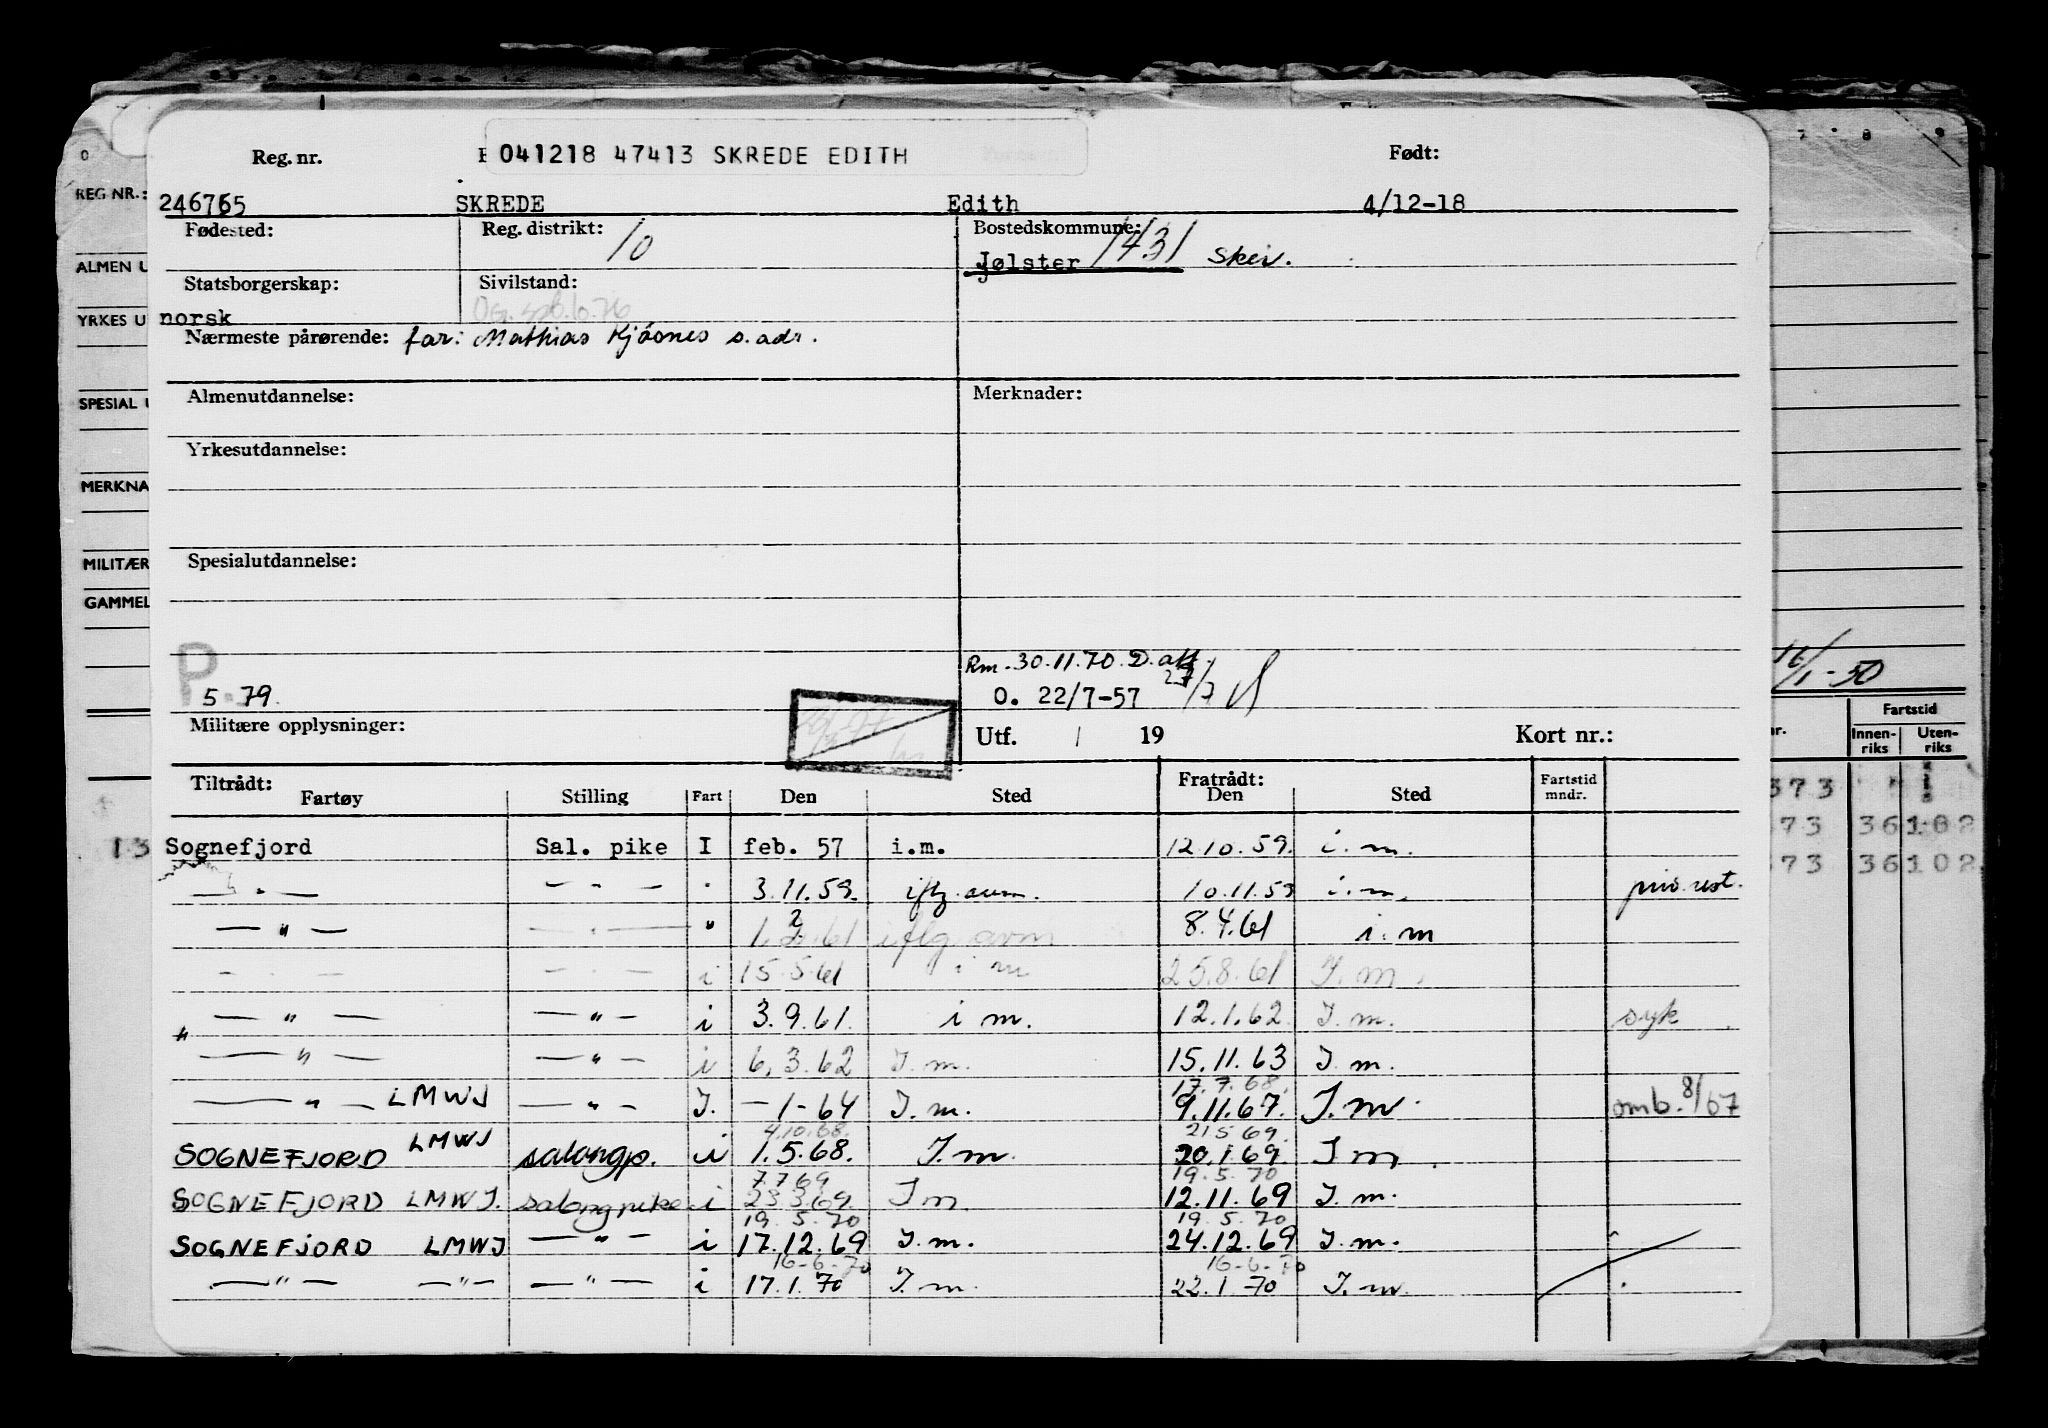 041218 47413 SKREDE EDITH
Reg. nr. Født:
246765 SKREDE Edith 4/12-18
Fødested: Reg. distrikt: 10 Bostedskommune: 1431
Jølster Skei.
Statsborgerskap: Sivilstand:
norsk
Nærmeste pårørende: far: Mathias Kjøsnes s. adr.
Almenutdannelse: Merknader:
Yrkesutdannelse:
Spesialutdannelse:
P.
5 79
Rm. 30.11.70 D. att.
O. 22/7-57 27/7
Militære opplysninger: Utf. / 19 Kort nr.:
Tiltrådt: Fratrådt:
Fartøy Stilling Fart Den Sted Den Sted Fartstid mndr.
Sognefjord Sal. pike I feb. 57 i.m. 12.10.59. i.m.
— " — — " — " 3.11.59. iflg. avm. 10.11.59 i.m.
— " — — " — " 1.2.61 iflg avm 8.4.61 i.m
— " — — " — i 15.5.61 i m 25.8.61 I.m.
— " — — " — i 3.9.61. i m. 12.1.62. I.m. syk
— " — — " — i 6.3.62 I.m. 15.11.63 I.m.
17.7.68.
— " — LMWJ — " — I. —1-64 I.m. 9.11.67. I.m. omb. 8/67
4.10.68. 21.5 69.
SOGNEFJORD LMWJ salongp. i 1.5.68. I.m. 20.1.69. I m.
7.7 69 19.5.70
SOGNEFJORD LMWJ. salongpike i 23.3.69. I m 12.11.69 I.m.
19.5.70 19.5.70
SOGNEFJORD LMWJ — " — i 17.12.69 I.m. 24.12.69 I.m.
16-6-70 16-6-70
— " — — " — — " — i 17.1.70 I.m. 22.1-70 I.m.
REG NR.:
ALMEN U
YRKES U
SPESIAL U
MERKNA
MILITÆR
GAMMEL
13
7 8 9
16/1-50
Fartstid
nr. Innenriks Utenriks
373
373 36 102
373 36 102